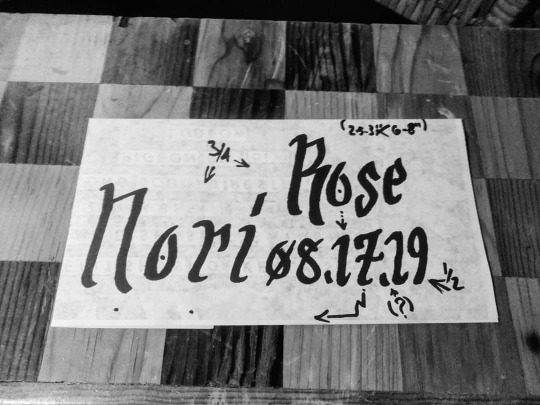 (2.5-3"X 6-8")
3/4
Rose
Nori
08.17.19
1/2
(?)